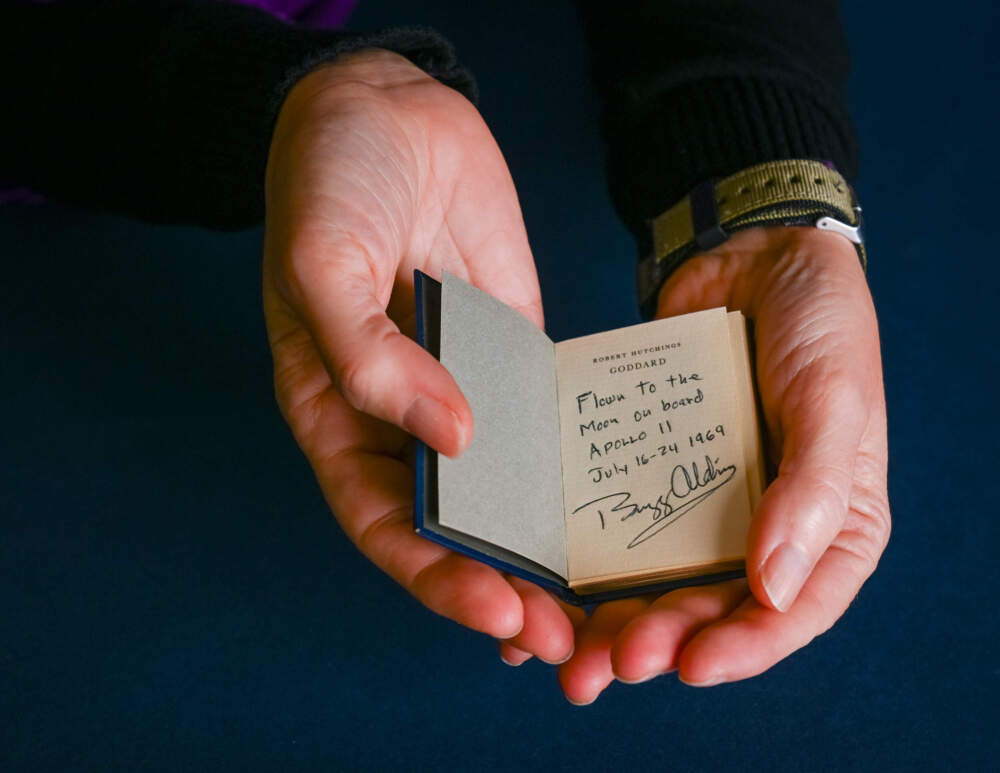 ROBERT HUTCHINGS
GODDARD
Flown to the
Moon on board
APOLLO 11
July 16-24 1969
Buzz Aldrin